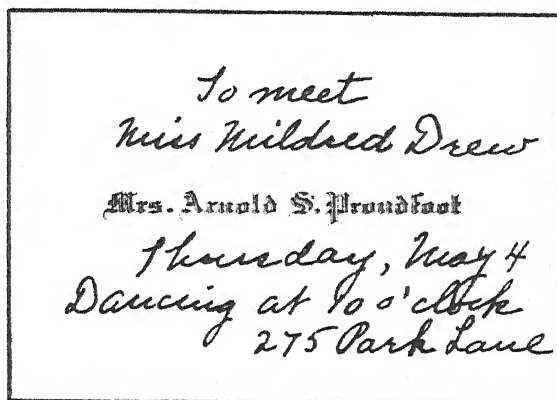 To meet
Miss Mildred Drew
Mrs. Arnold S. Proudfoot
Thursday, May 4
Dancing at 10 o'clock
275 Park Lane